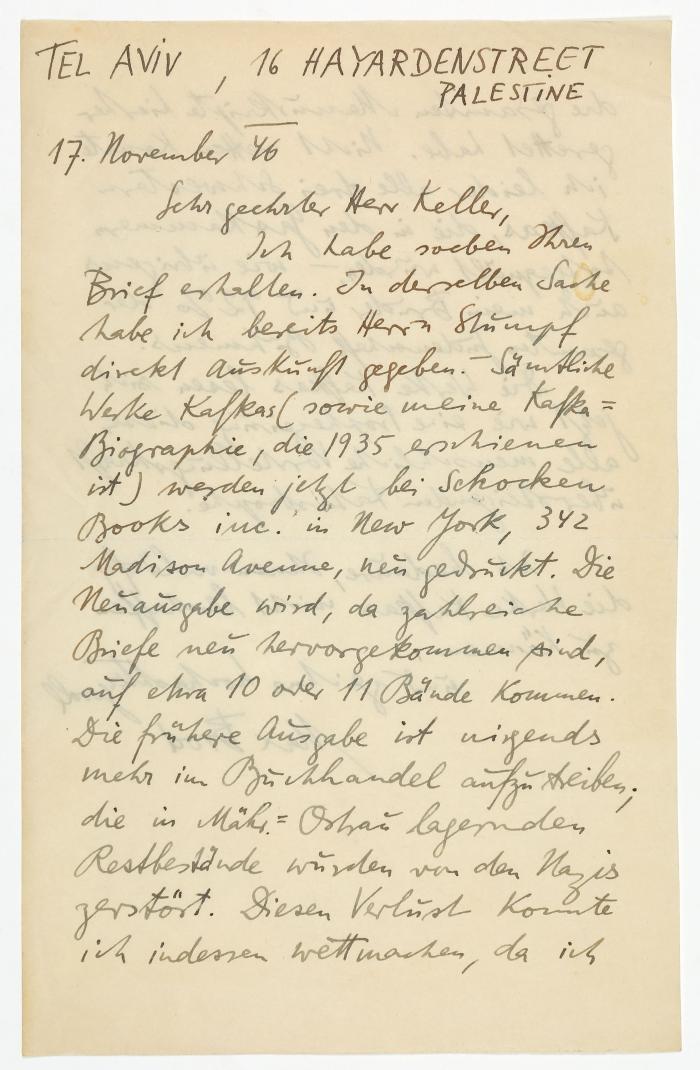 TEL AVIV, 16 HAYARDENSTREET
PALESTINE
17. November 46
Sehr geehrter Herr Keller,
Ich habe soeben Ihren
Brief erhalten. In derselben Sache
habe ich bereits Herrn Stumpf
direkt Auskunft gegeben. – Sämtliche
Werke Kafkas (sowie meine Kafka=
Biographie, die 1935 erschienen
ist) werden jetzt bei Schocken
Books inc. in New York, 342
Madison Avenue, neu gedruckt. Die
Neuausgabe wird, da zahlreiche
Briefe neu hervorgekommen sind,
auf etwa 10 oder 11 Bände kommen.
Die frühere Ausgabe ist nirgends
mehr im Buchhandel aufzutreiben;
die in Mähr.= Ostrau lagernden
Restbestände wurden von den Nazis
zerstört. Diesen Verlust konnte
ich indessen wettmachen, da ich